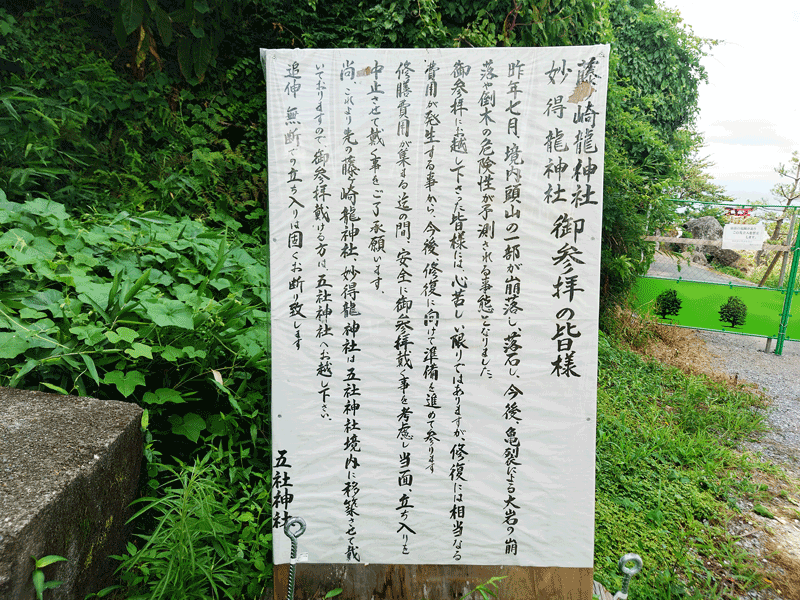 藤ヶ崎龍神社
妙得龍神社
御参拝の皆様
昨年七月、境内、頭山の一部が崩落し、落石し、今後、亀裂による大岩の崩
落や倒木の危険性が予測される事態となりました。
御参拝にお越し下さった皆様には、心苦しい限りではありますが、修復には相当なる
費用が発生する事から、今後、修復に向けて準備を進めて参ります
修膳費用が集まる迄の間、安全に御参拝戴く事を考慮し当面、立ち入りを
中止させて戴く事をご了承願います。
尚、これより先の藤ヶ崎龍神社、妙得龍神社は五社神社境内に移築させて戴
いておりますので御参拝戴ける方は、五社神社へお越し下さい。
追伸 無断での立ち入りは固くお断り致します
五社神社